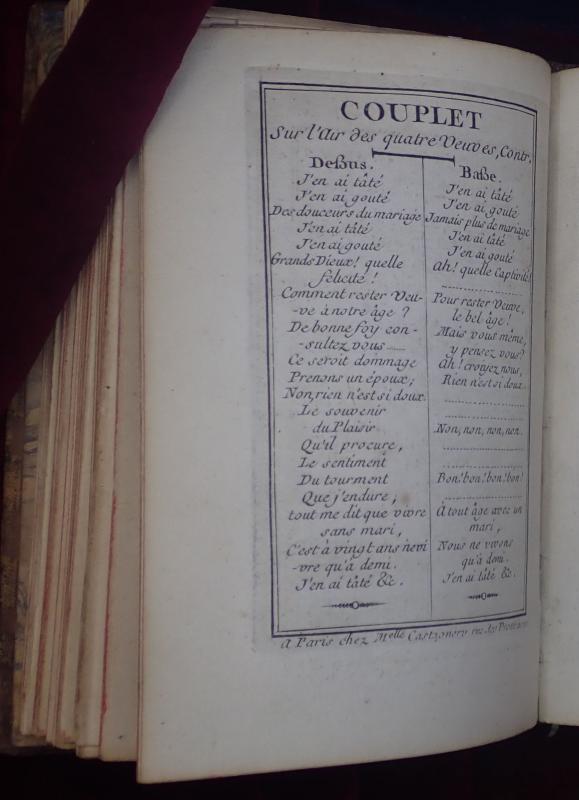 COUPLET
Sur l'Air des quatre Veuves, Contr.
Dessus.
J'en ai tâté
J'en ai gouté
Des douceurs du mariage
J'en ai tâté
J'en ai gouté
Grands Dieux! quelle
felicité!
Comment rester Veu-
-ve à notre âge?
De bonne foy con-
-sultez vous......
Ce seroit dommage
Prenons un époux;
Non, rien n'est si doux.
Le souvenir
du Plaisir
Qu'il procure,
Le sentiment
Du tourment
Que j'endure;
tout me dit que vivre
sans mari,
C'est à vingt ans ne vi
-vre qu'à demi.
J'en ai tâté &c.
Basse.
J'en ai tâté
J'en ai gouté
Jamais plus de mariage
J'en ai tâté
J'en ai gouté
Ah! quelle Captivité!
Pour rester Veuve,
le bel âge!
Mais vous même,
y pensez vous?
Ah! croyez nous,
Rien n'est si doux
Non, non, non, non.
Bon! bon! bon! bon!
À tout âge avec un
mari,
Nous ne vivons
qu'à demi.
J'en ai tâté &c.
a Paris chez Melle Castagnery rue des